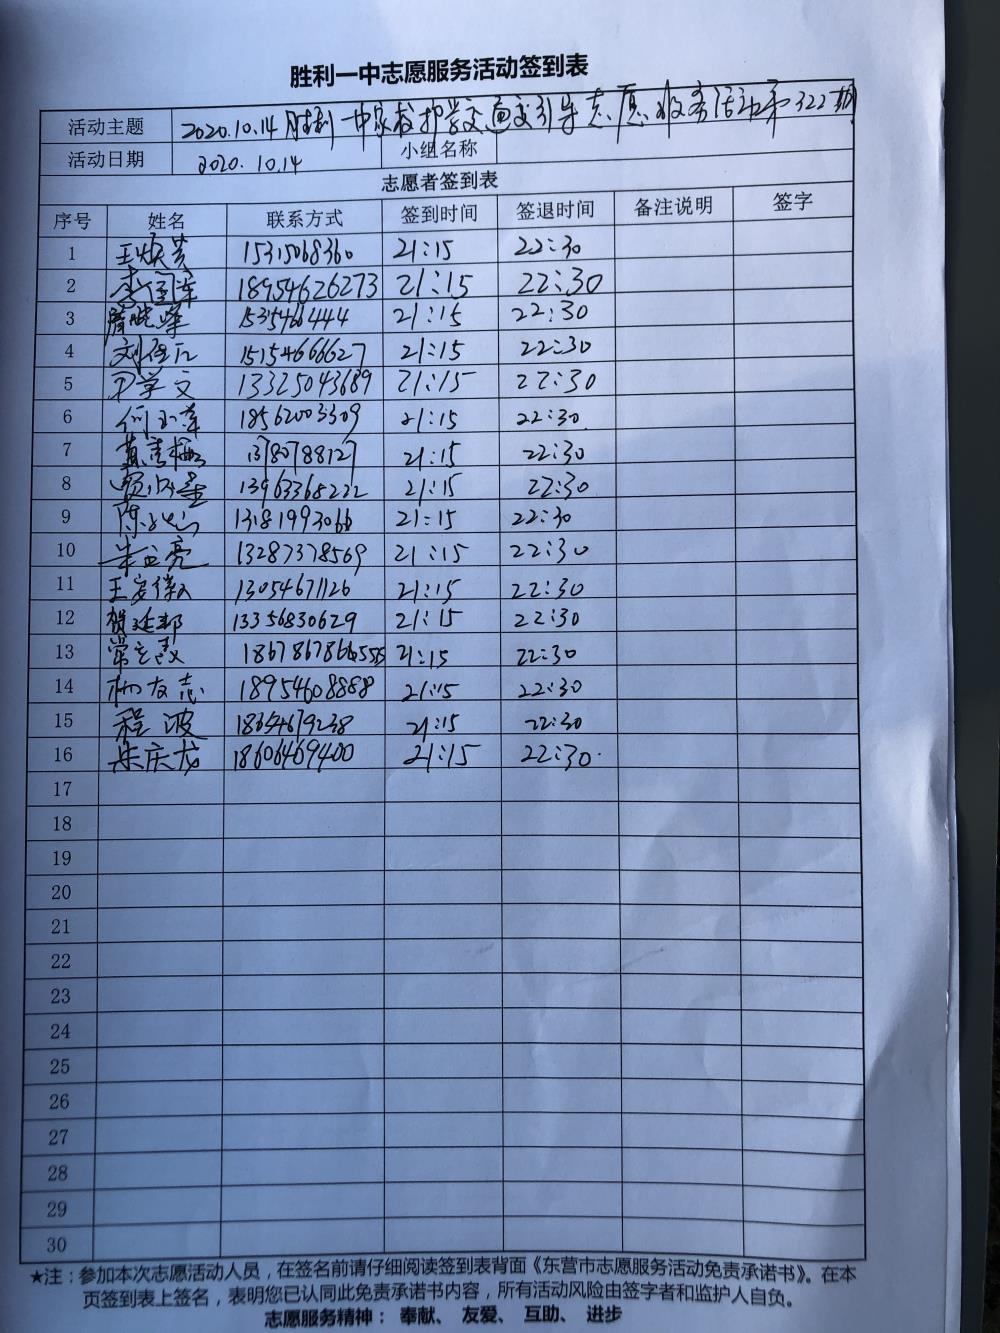 胜利一中志愿服务活动签到表
活动主题 2020.10.14 胜利一中家校护学交通安引导志愿服务活动第322期
活动日期 2020.10.14 小组名称
志愿者签到表
序号 姓名 联系方式 签到时间 签退时间 备注说明 签字
1 王焕芸 15315068360 21:15 22:30
2 18954626273 21:15 22:30
3 1535466444 21:15 22:30
4 15154666627 21:15 22:30
5 尹学文 13325043689 21:15 22:30
6 18562003309 21:15 22:30
7 13780788127 21:15 22:30
8 13963368222 21:15 22:30
9 13181993066 21:15 22:30
10 朱立亮 13287378569 21:15 22:30
11 13054671126 21:15 22:30
12 贺延邦 13356830629 21:15 22:30
13 21:15 22:30
14 柳友志 18954608888 21:15 22:30
15 程波 18654679238 21:15 22:30
16 朱庆龙 18606469400 21:15 22:30
17
18
19
20
21
22
23
24
25
26
27
28
29
30
★注：参加本次志愿活动人员，在签名前请仔细阅读签到表背面《东营市志愿服务活动免责承诺书》。在本
页签到表上签名，表明您已认同此免责承诺书内容，所有活动风险由签字者和监护人自负。
志愿服务精神： 奉献、 友爱、 互助、 进步